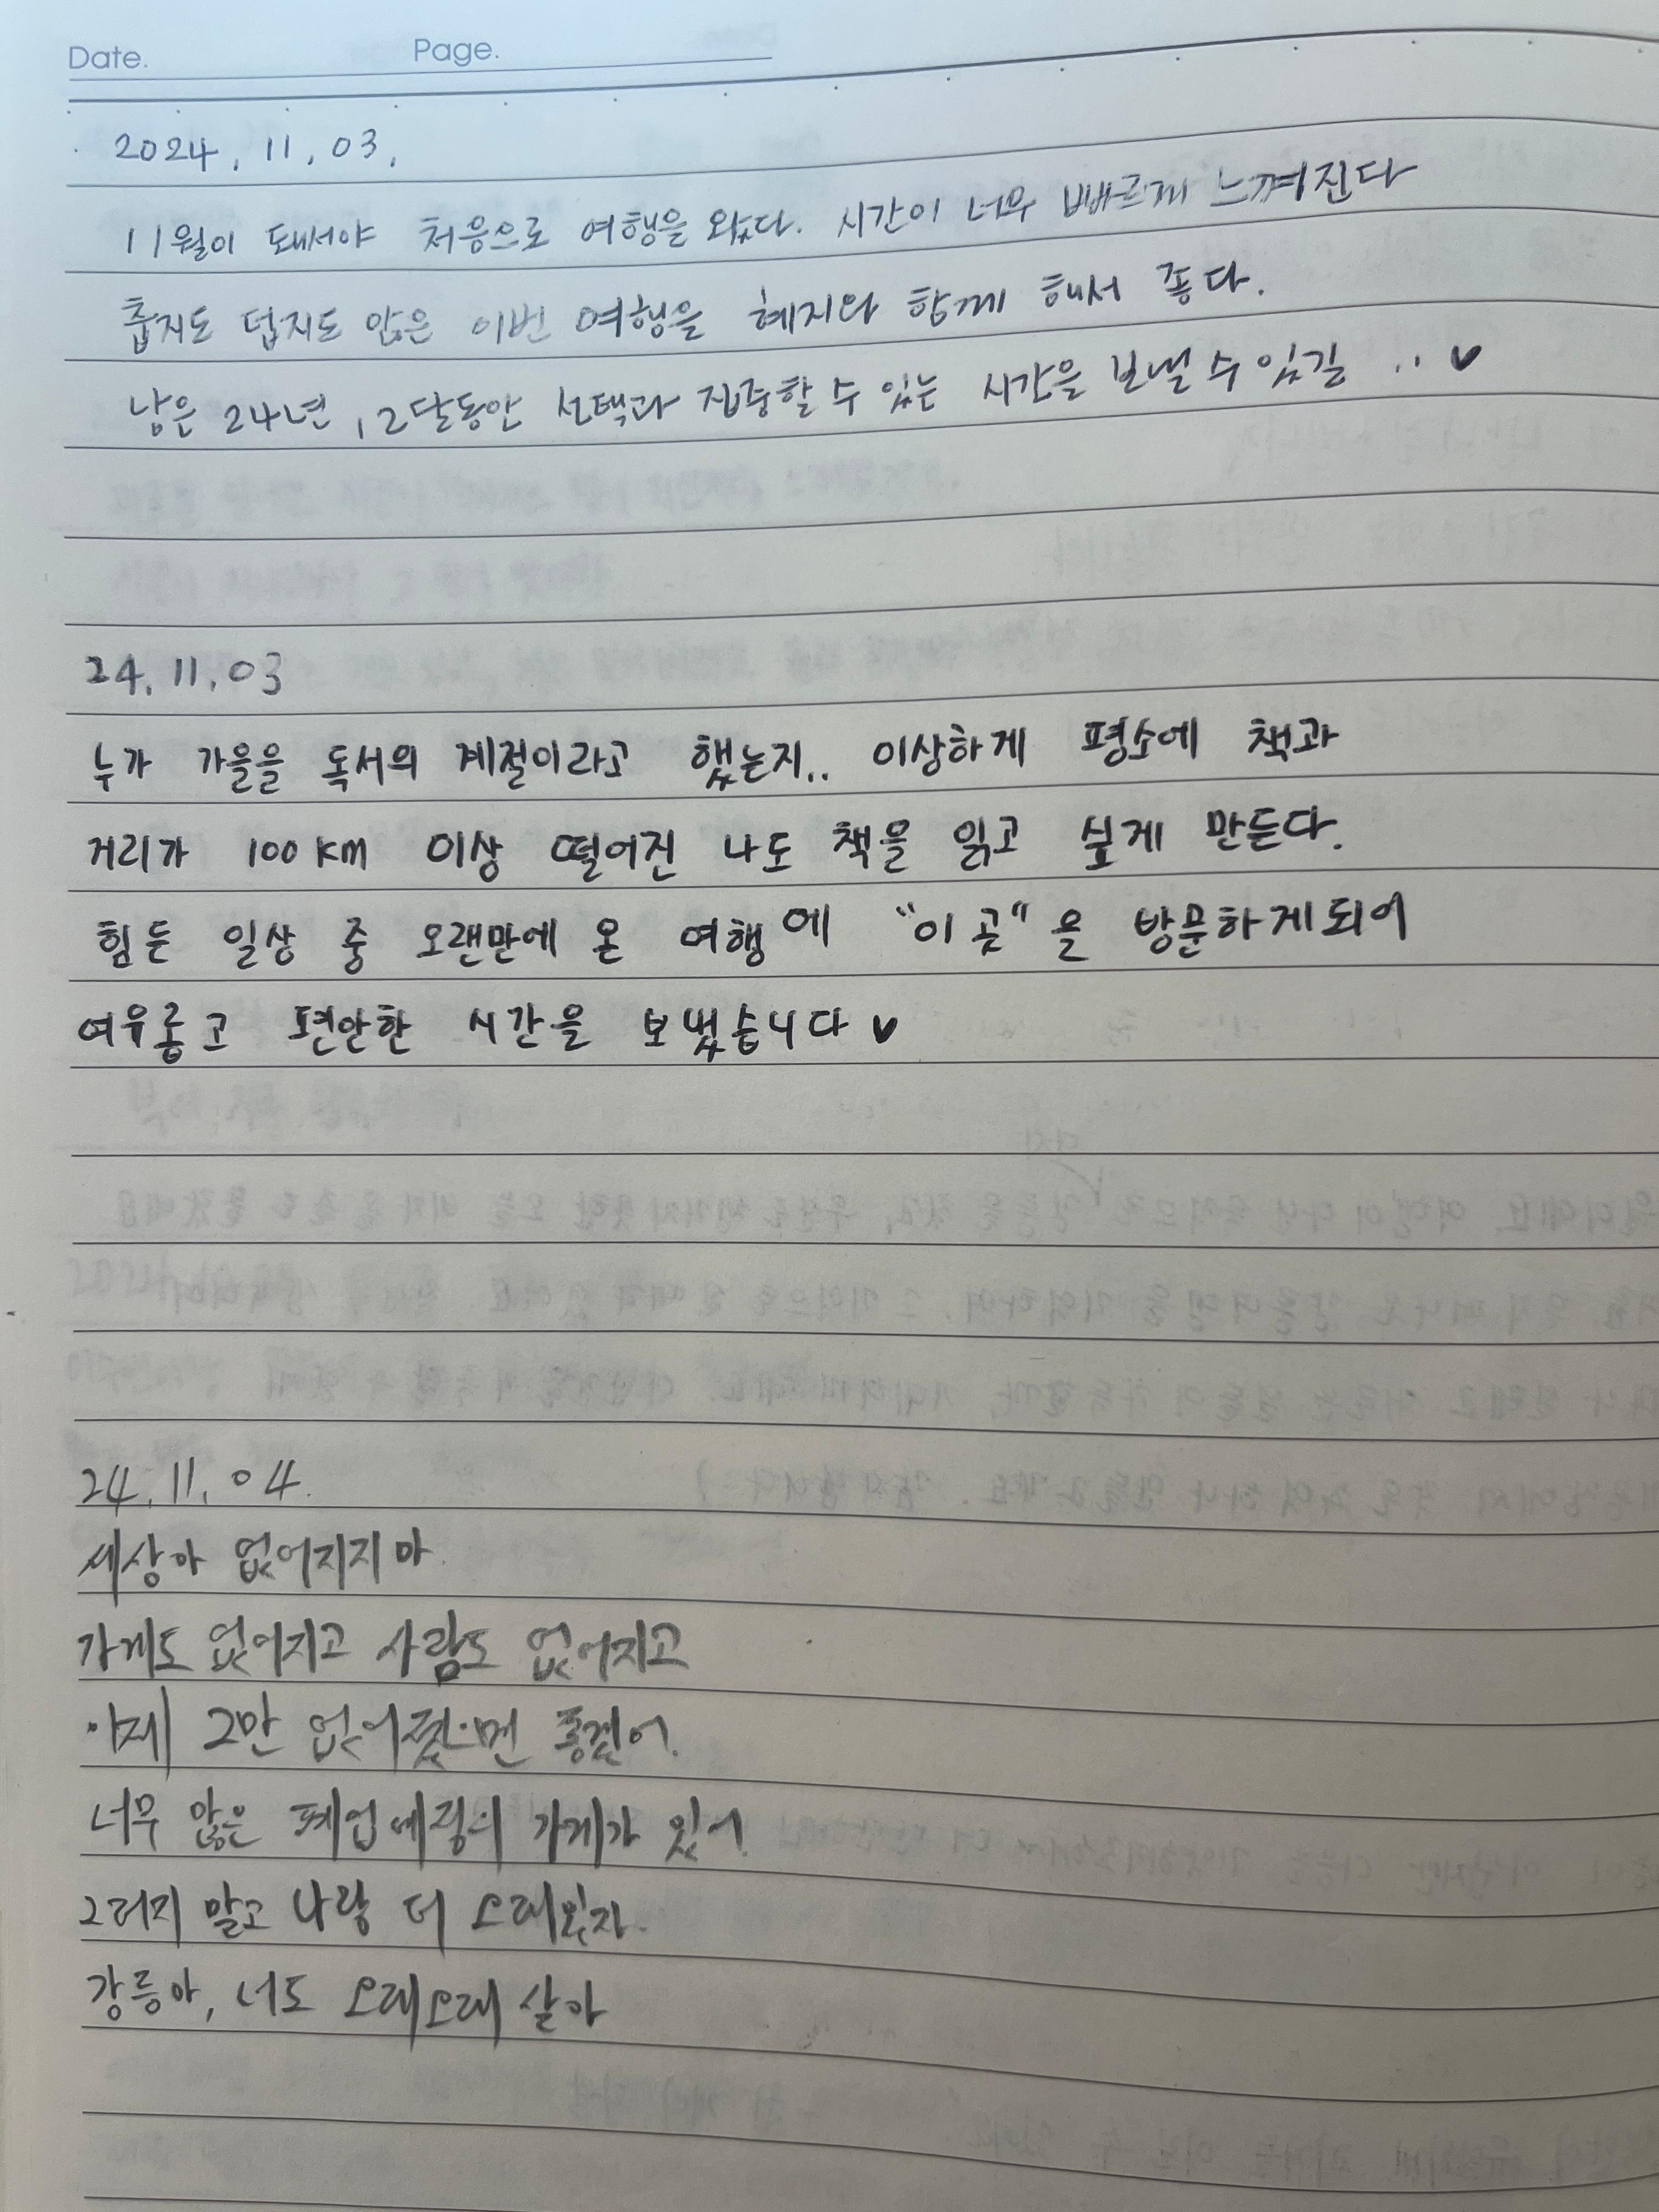 Date. Page.
2024. 11. 03.
11월이 돼서야 처음으로 여행을 왔다. 시간이 너무 빠르게 느껴진다
춥지도 덥지도 않은 이번 여행을 혜지와 함께 해서 좋다.
남은 24년, 2달동안 선택과 집중할 수 있는 시간을 보낼 수 있길 .. ♥
24. 11. 03
누가 가을을 독서의 계절이라고 했는지.. 이상하게 평소에 책과
거리가 100km 이상 떨어진 나도 책을 읽고 싶게 만든다.
힘든 일상 중 오랜만에 온 여행에 "이 곳"을 방문하게되어
여유롭고 편안한 시간을 보냈습니다 ♥
24. 11. 04.
세상아 없어지지마
가게도 없어지고 사람도 없어지고
이제 그만 없어졌으면 좋겠어.
너무 많은 폐업예정의 가게가 있어.
그러지 말고 나랑 더 오래있자.
강릉아, 너도 오래오래 살아